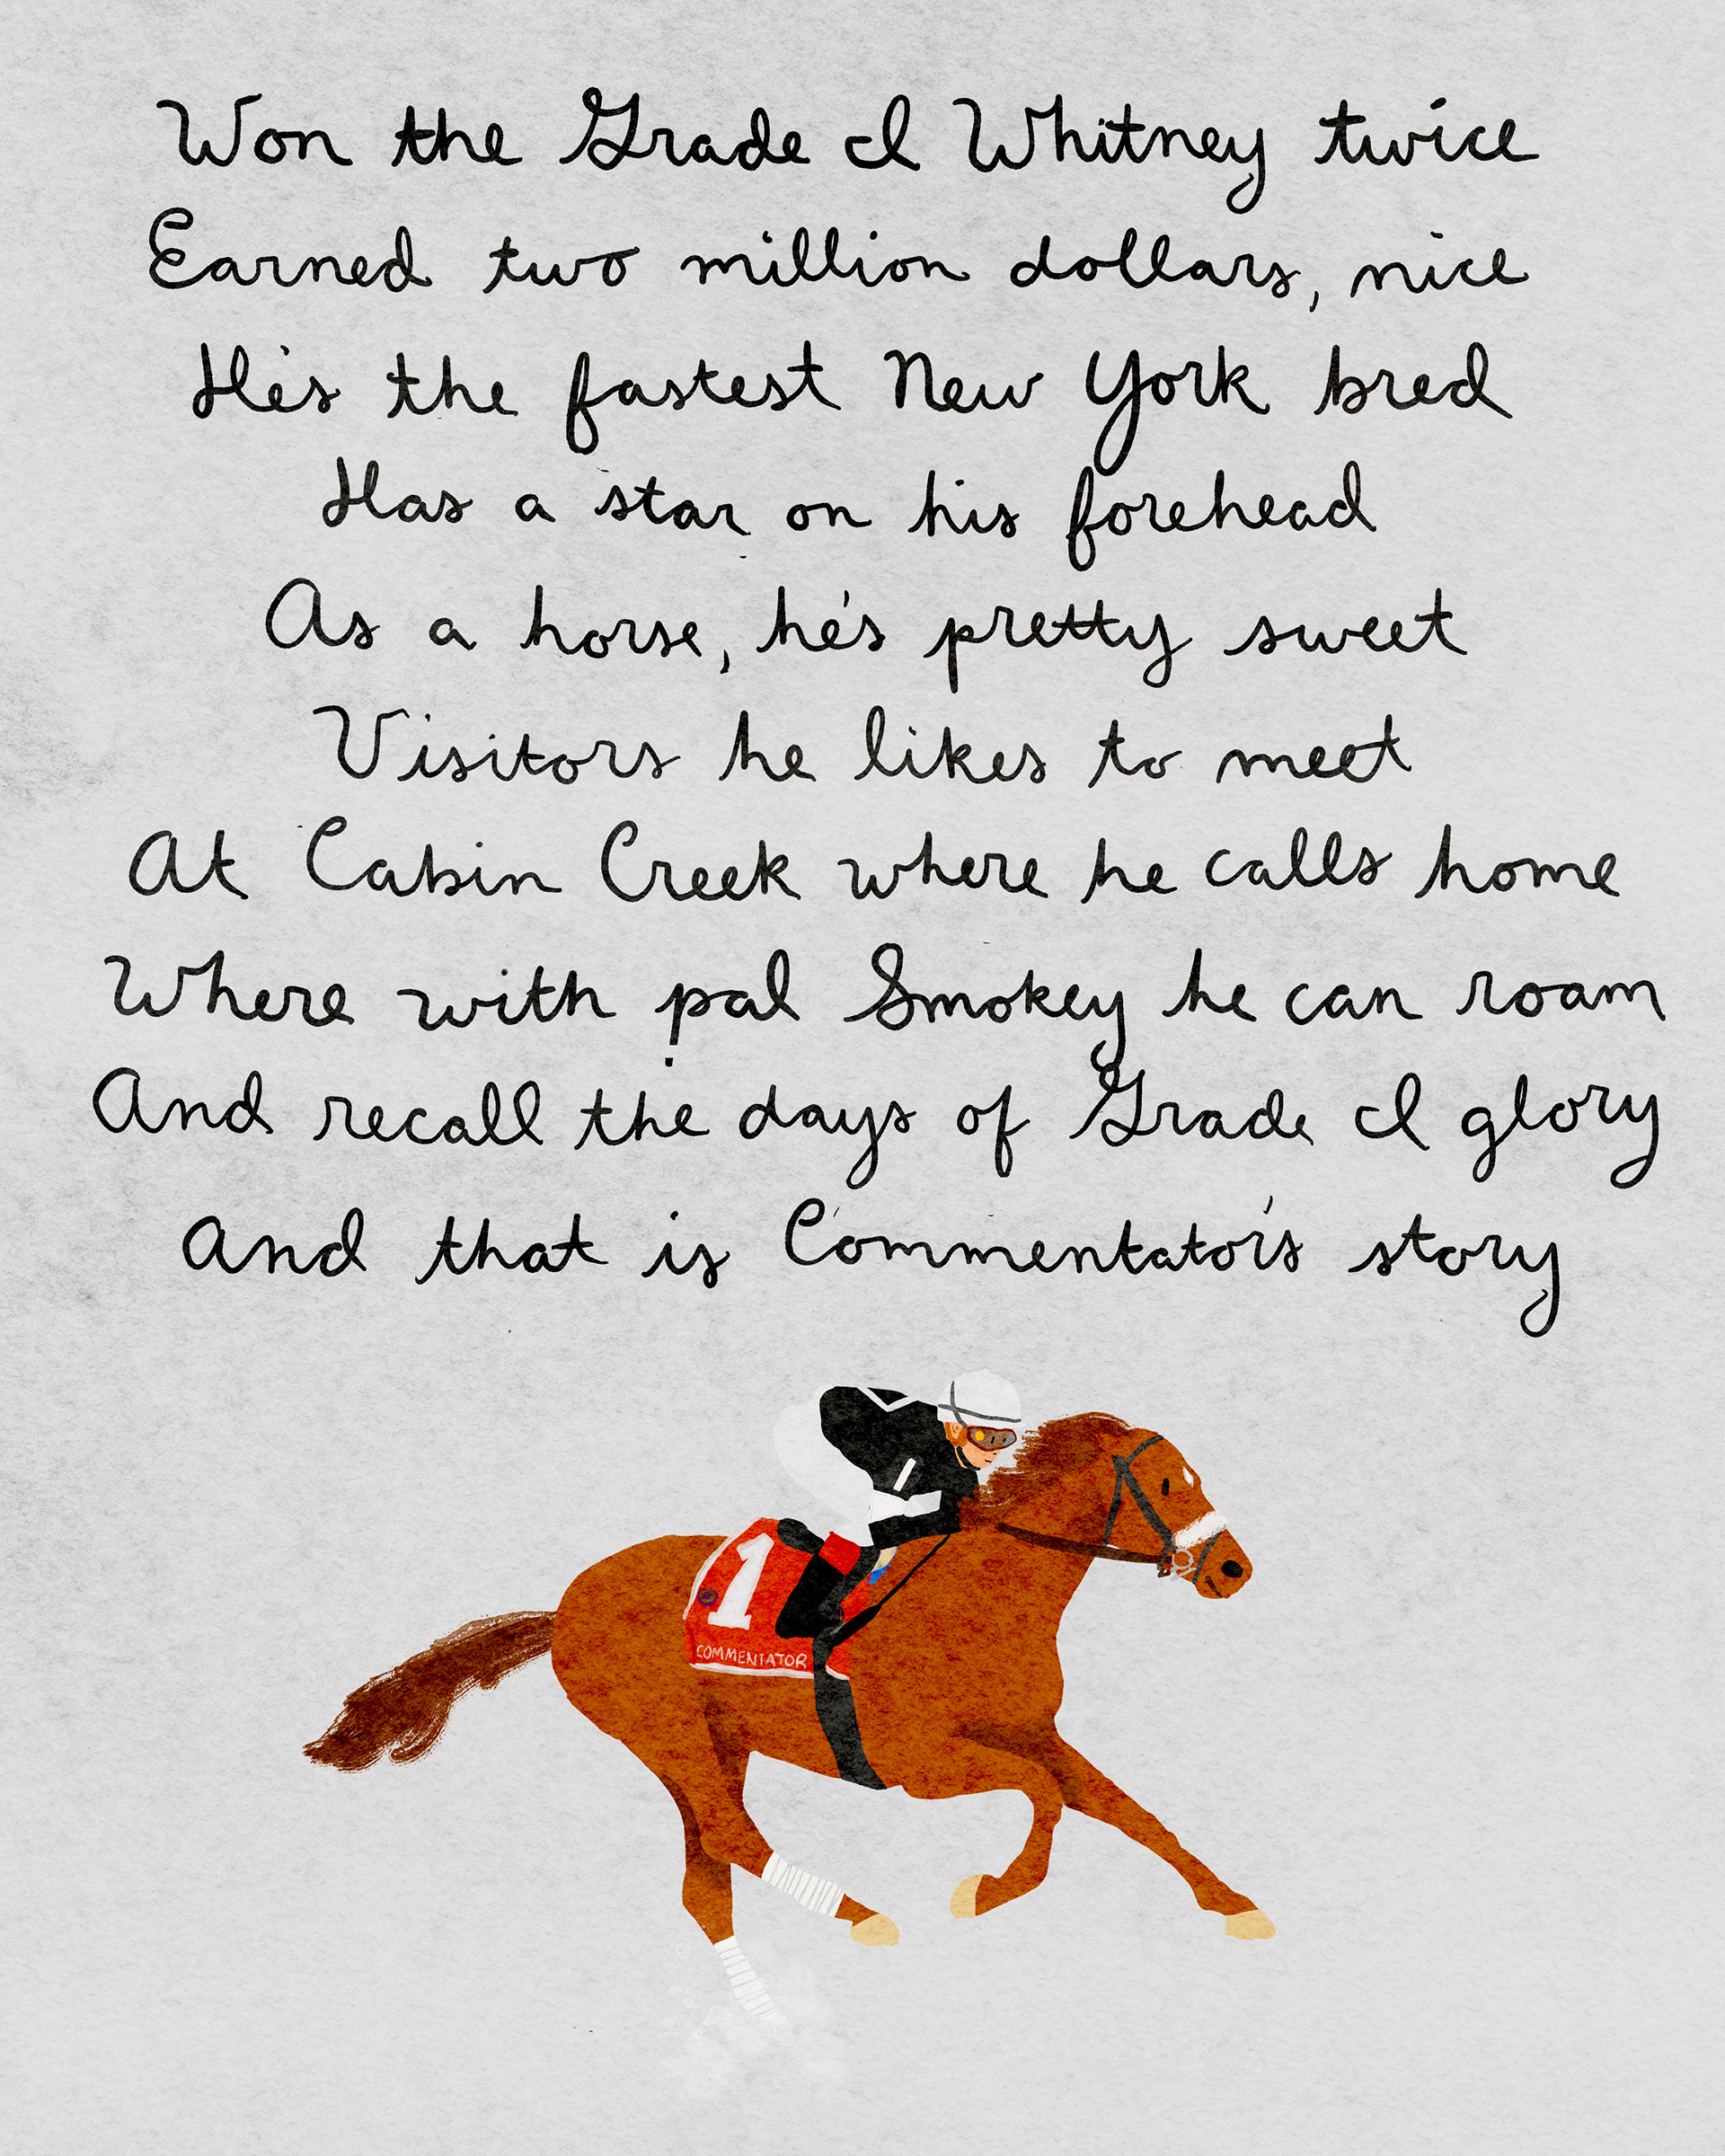 Won the Grade I Whitney twice
Earned two million dollars, nice
He's the fastest New York bred
Has a star on his forehead
As a horse, he's pretty sweet
Visitors he likes to meet
At Cabin Creek where he calls home
Where with pal Smokey he can roam
And recall the days of Grade I glory
And that is Commentator's story
1
COMMENTATOR